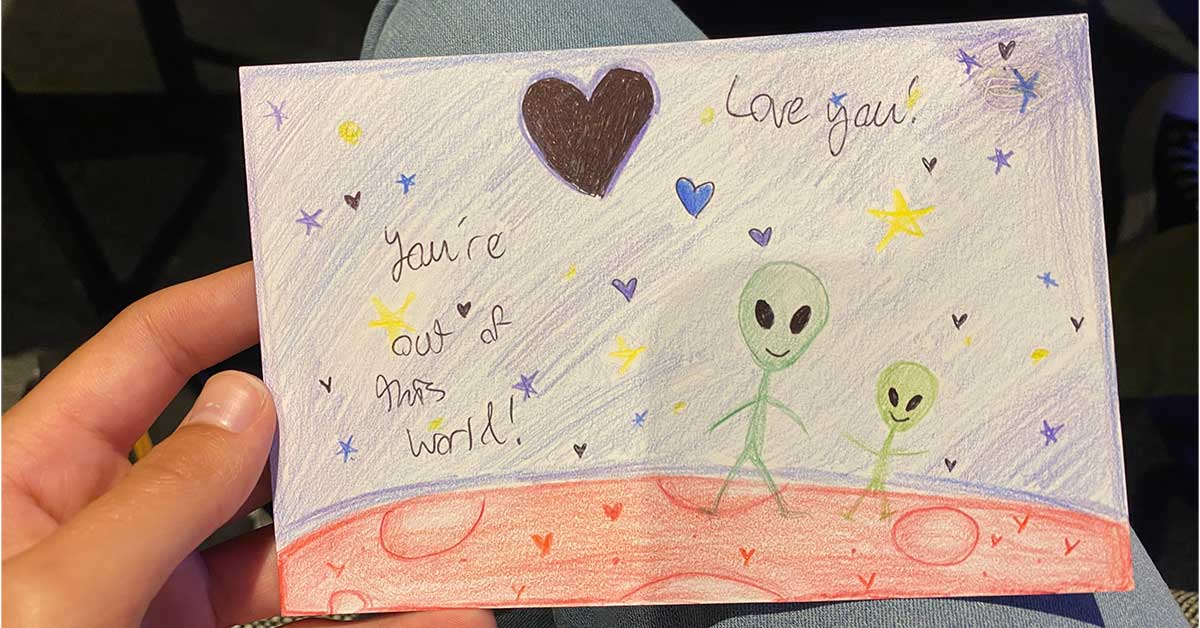 Love you!
You're
out of
this
world!